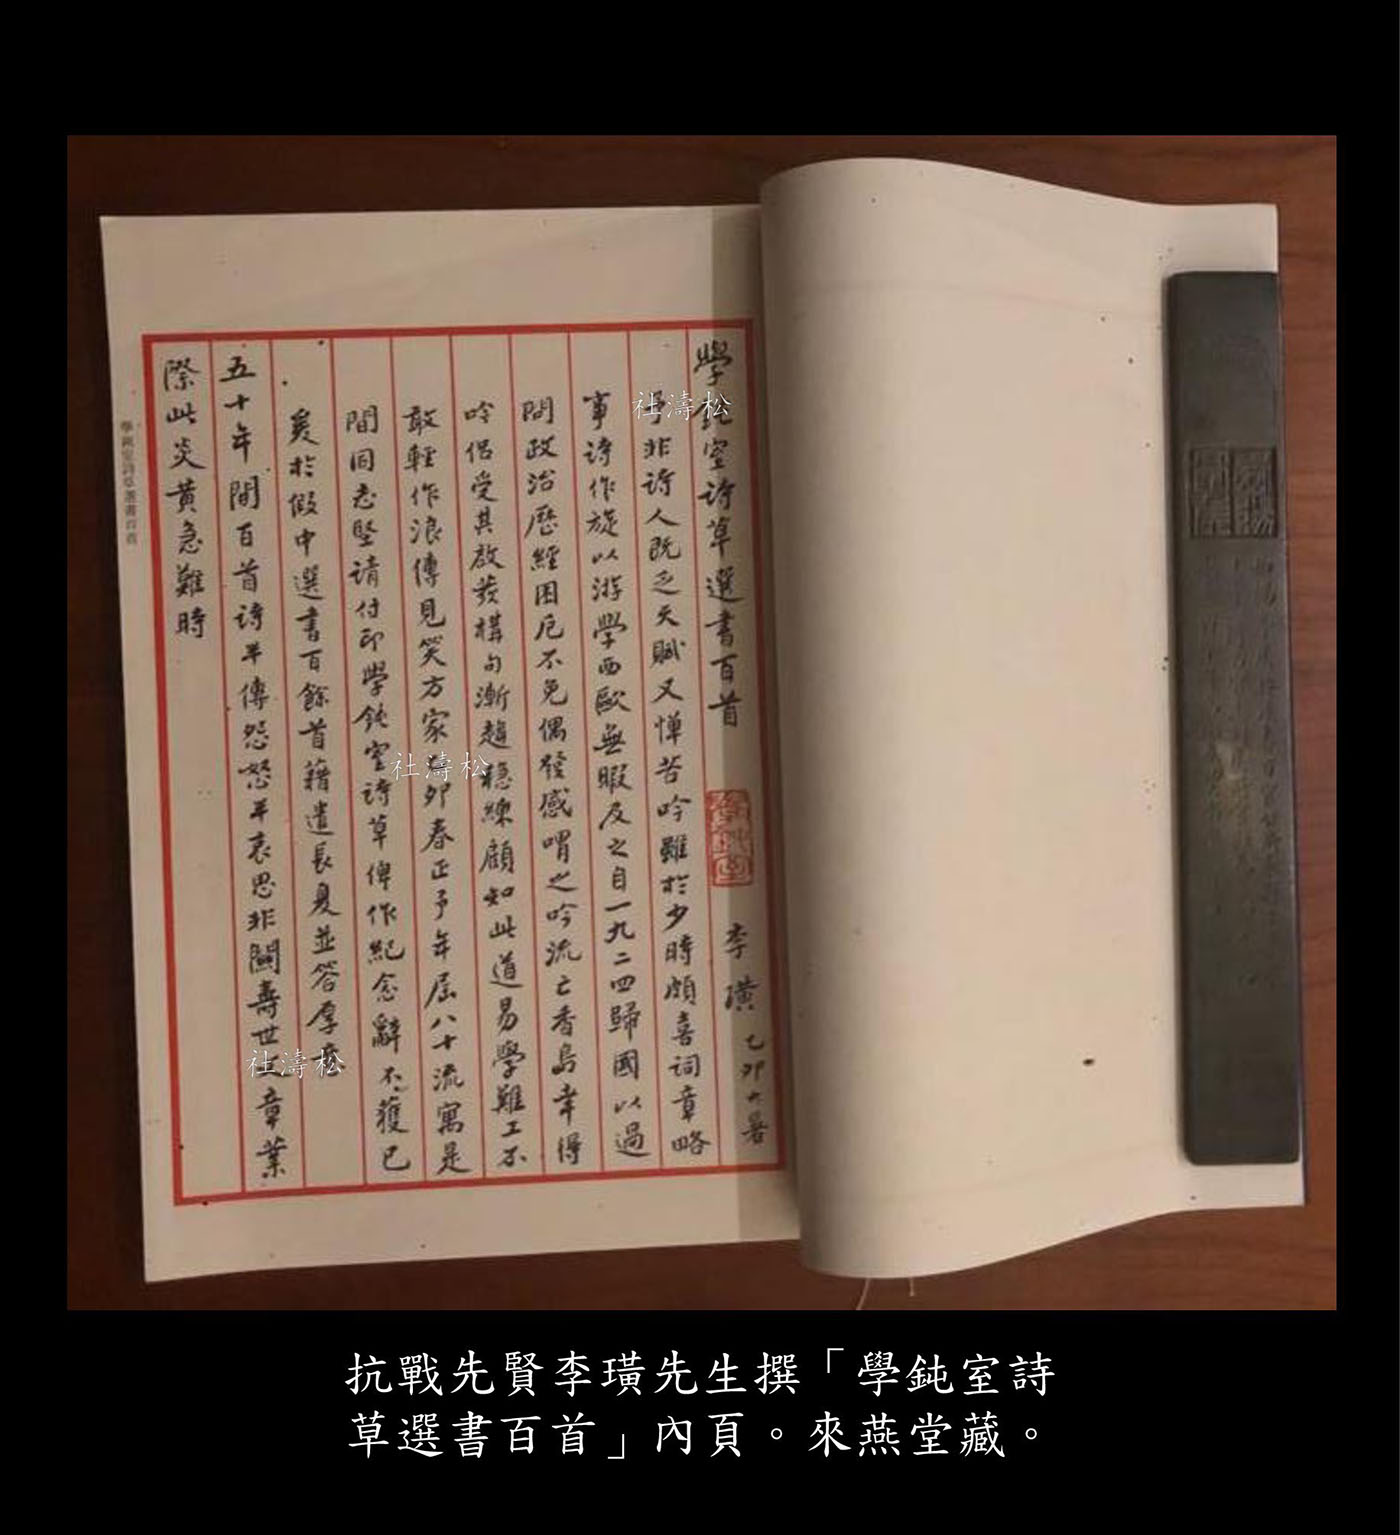 學鈍室詩草選書百首
李璜 乙卯大暑
予非詩人既乏天賦又憚苦吟雖於少時頗喜詞章略
事詩作旋以游學西歐無暇及之自一九二四歸國以過
問政治歷經困厄不免偶發感喟之吟流亡香島幸得
吟侶受其啟發構句漸趨穩練顧知此道易學難工不
敢輕作浪傳見笑方家 卯春正予年屆八十流寓是
間同志堅請付印學鈍室詩草俾作紀念辭不獲已
爰於假中選書百餘首藉遣長夏並答厚
五十年間百首詩半傳怨怒半哀思非關壽世 章業
際此炎黃急難時
學鈍室詩草選書百首
社濤松
社濤松
社濤松
抗戰先賢李璜先生撰「學鈍室詩
草選書百首」內頁。來燕堂藏。